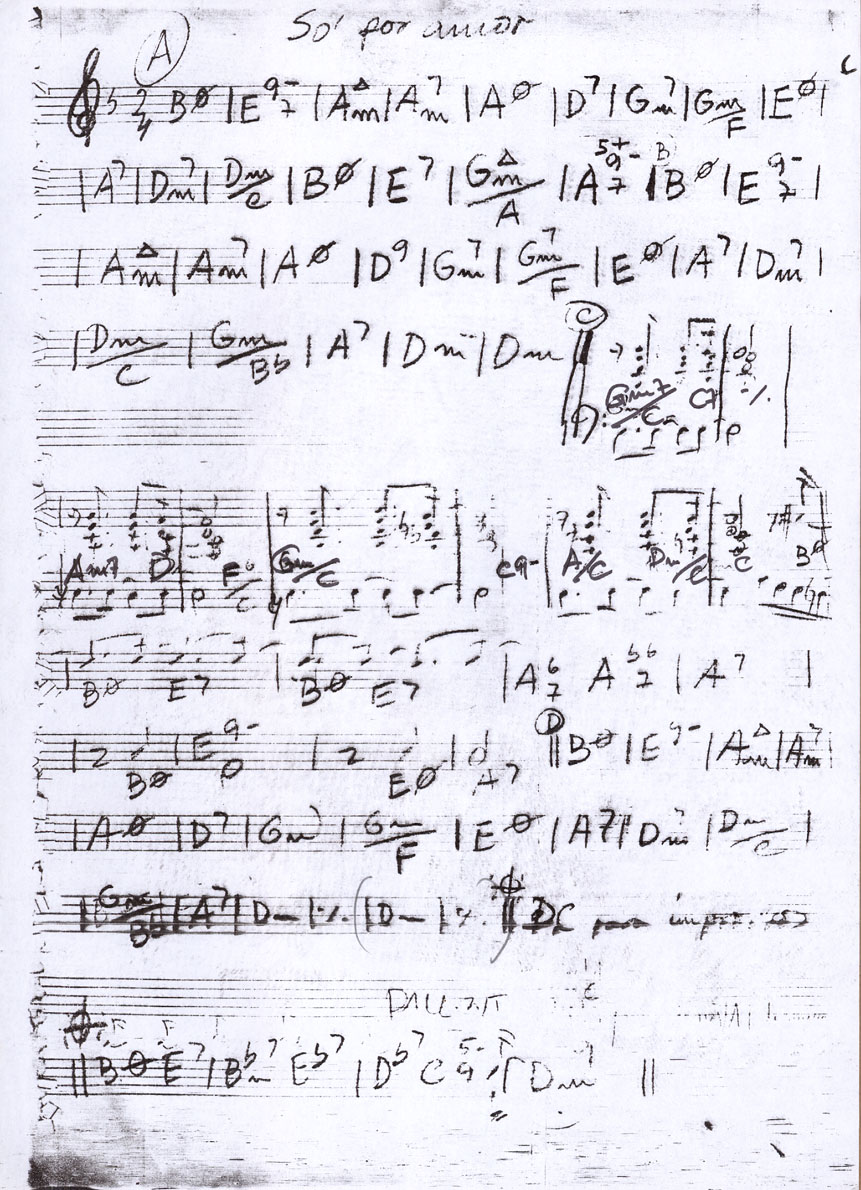 Só por amor
A
2/4 BØ | E 9- 7 | AmΔ | Am7 | AØ | D7 | Gm7 | Gm/F | EØ |
| A7 | Dm7 | Dm/C | BØ | E7 | GmΔ/A | A 5+ 9- 7 | B BØ | E 9- 7 |
| AmΔ | Am7 | AØ | D9 | Gm7 | Gm7/F | EØ | A7 | Dm7 |
| Dm/C | Gm/Bb | A7 | Dm | Dm || C
Gm7/C C7 ٪
Am7 D F6/C Gm/C C9- A/C Dm/C C BØ
| BØ E7 | BØ E7 | A 6 7 A b6 7 | A7 |
| 2 BØ | E 9- | 2 EØ | A7 || D BØ | E 9- | AmΔ | Am7 |
| AØ | D7 | Gm | Gm/F | EØ | A7 | Dm7 | Dm/C |
| Gm/Bb | A7 | Dm | ٪ | ( Dm | ٪ ) || DC para
|| BØ E7 | Bbm7 Eb7 | Db7 C 5- 9 | Dm ||